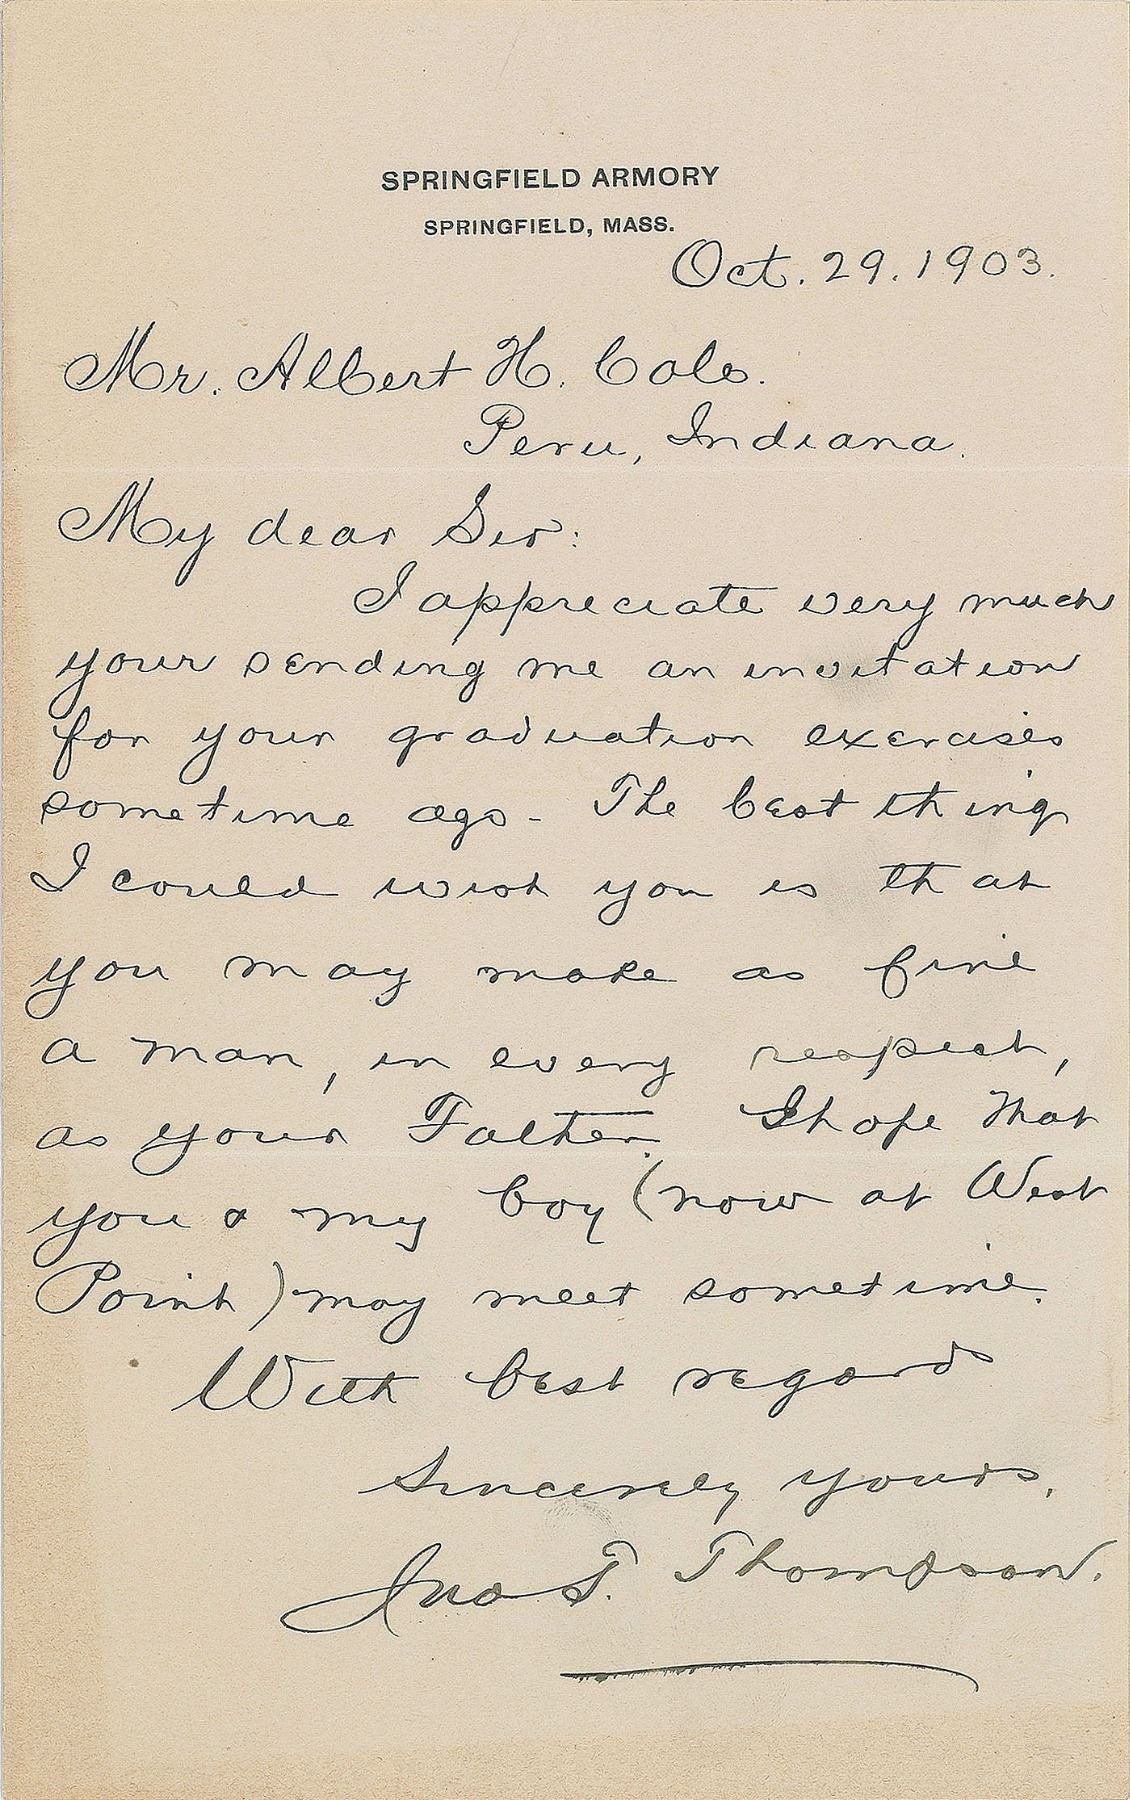 SPRINGFIELD ARMORY
SPRINGFIELD, MASS.
Oct. 29. 1903.
Mr. Albert H. Cole.
Peru, Indiana.
My dear Sir:
I appreciate very much
your sending me an invitation
for your graduation exercises
sometime ago - The best thing
I could wish you is that
you may make as fine
a man, in every respect,
as your Father. I hope that
you & my boy (now at West
Point) may meet sometime.
With best regards
Sincerely yours,
Jno T. Thompson.